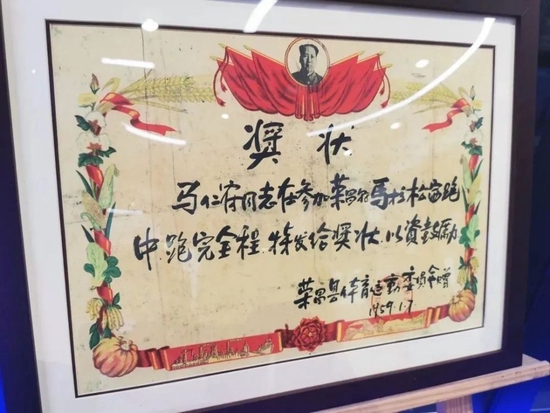 奖状
马仁同志在参加荣昌马拉松赛跑
中跑完全程.特发给奖状,以资鼓励
荣昌县体育运动委员会赠
1959.1.7